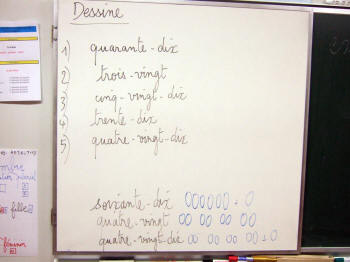 Dessine
1) quarante-dix
2) trois-vingt
3) cinq-vingt-dix
4) trente-dix
5) quatre-vingt-dix
soixante-dix 000000 + 0
quatre-vingt 00 00 00 00
quatre-vingt-dix 00 00 00 00 + 0
fille